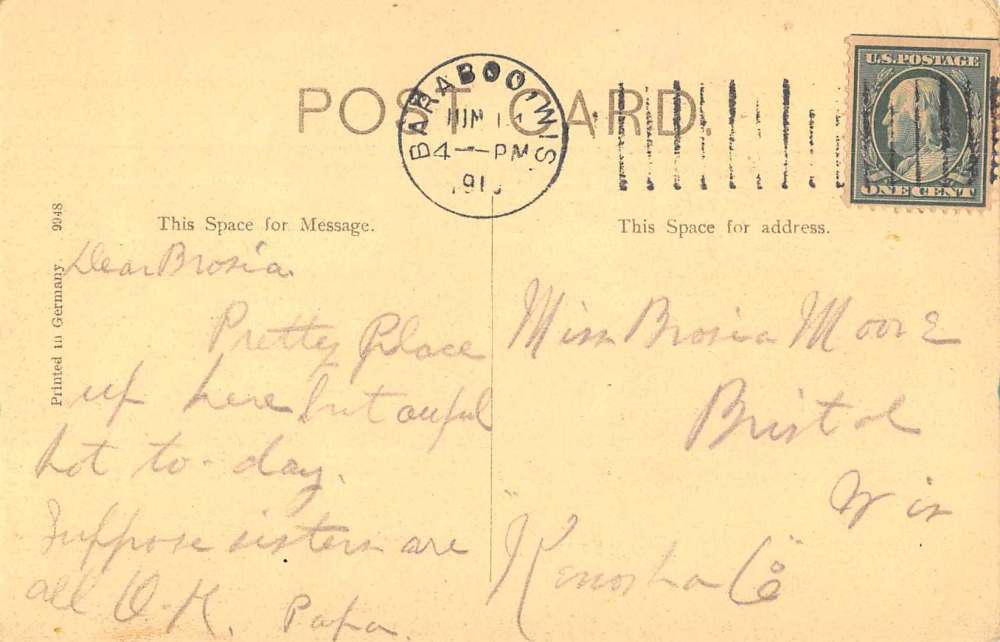 POST CARD.
BARABOO, WIS.
4 — PM
U.S. POSTAGE
ONE CENT
This Space for Message.
This Space for address.
Printed in Germany. 9948
Dear Brosia.
Pretty Place
up here but awful
hot to-day.
Suppose sisters are
all O.K. Papa.
Miss Brosia Moore
Bristol
Wis
"Kenosha Co"